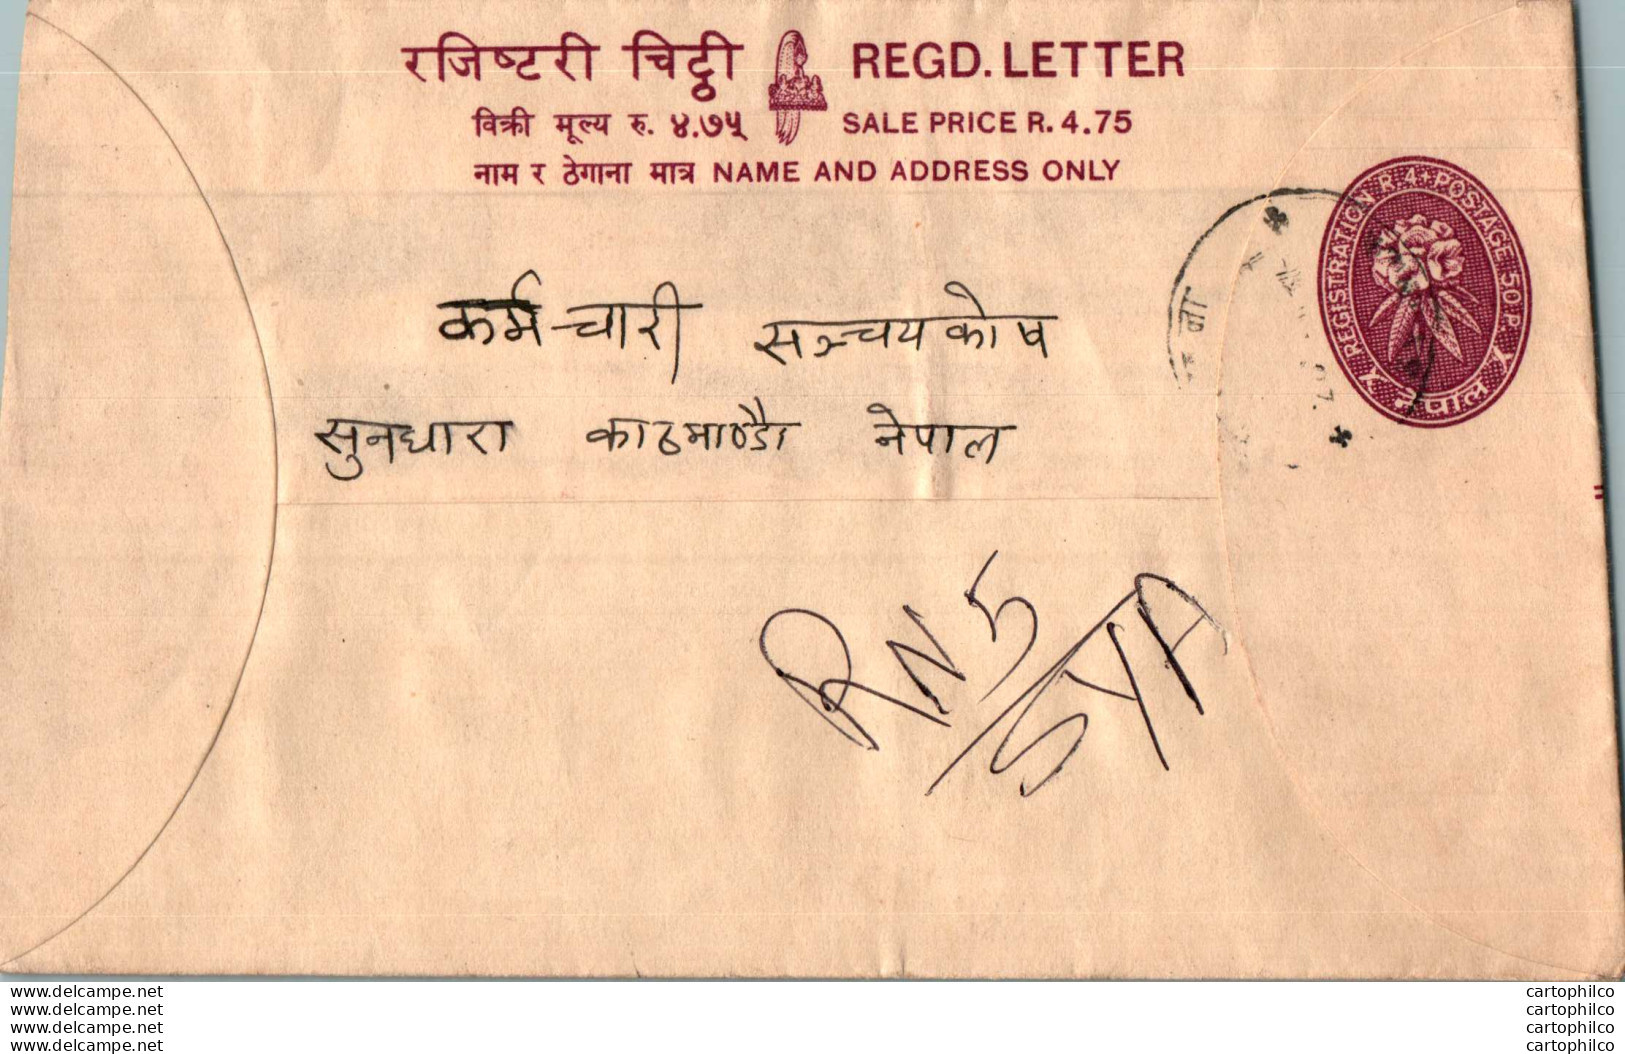 रजिष्टरी चिट्ठी REGD. LETTER
विक्री मूल्य रु. ४.७५ SALE PRICE R. 4.75
नाम र ठेगाना मात्र NAME AND ADDRESS ONLY
REGISTRATION R 4 POSTAGE 50 P.
नेपाल
कर्मचारी सञ्चयकोष
सुनधारा काठमाण्डौ नेपाल
RN 5/SYA
www.delcampe.net cartophilco
www.delcampe.net cartophilco
www.delcampe.net cartophilco
www.delcampe.net cartophilco